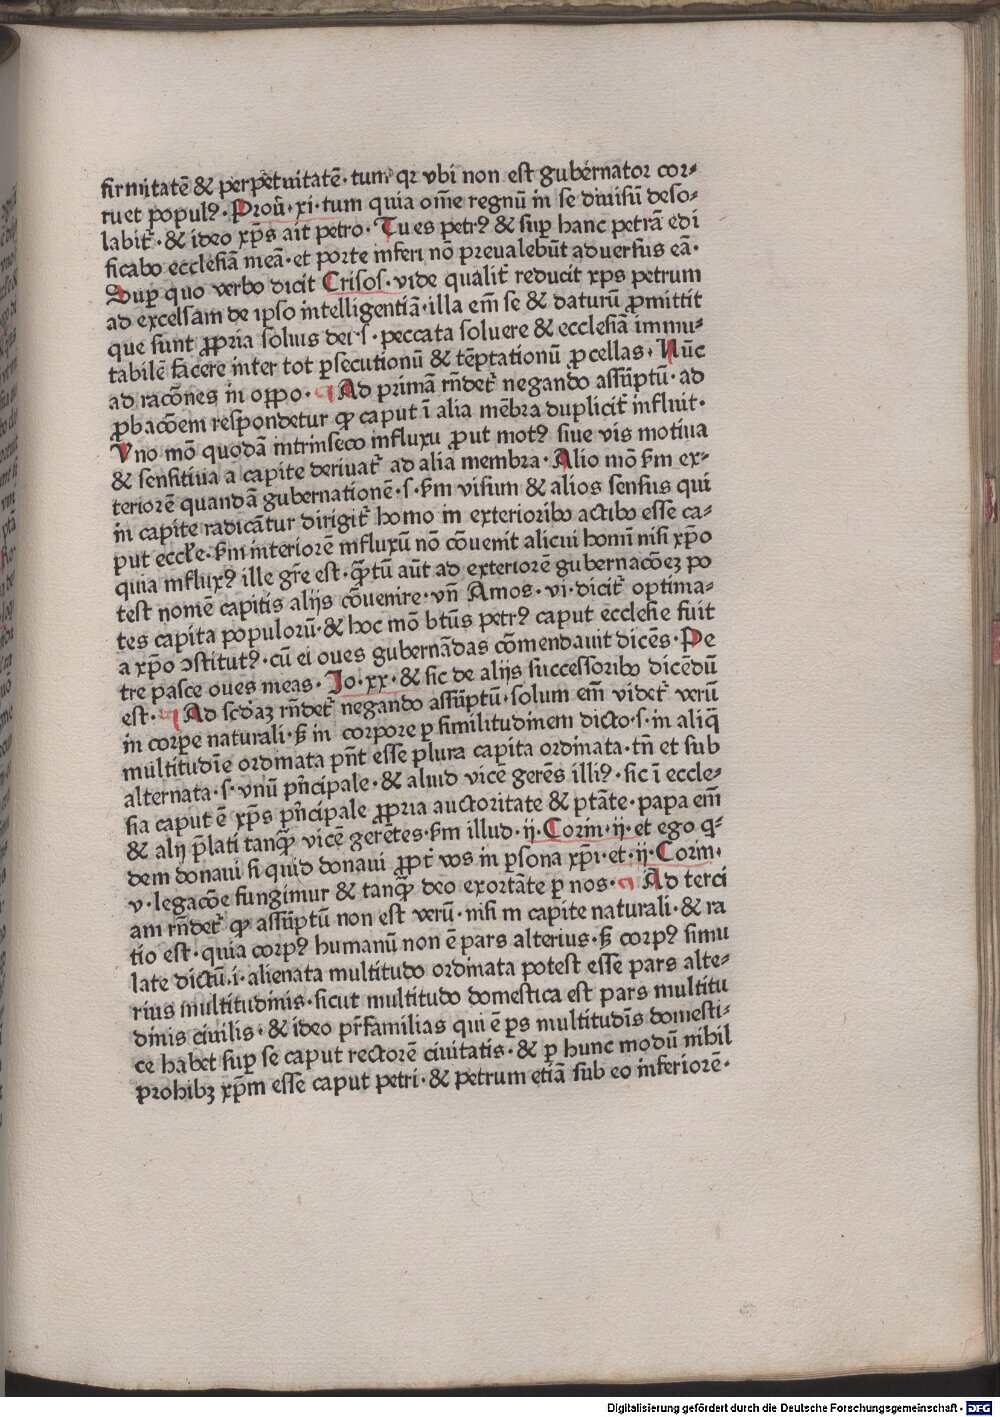 firmitatē & perpetuitatē· tum qꝛ vbi non est gubernator coꝛ⸗
ruet populꝰ· Prou̅·xi·tum quia om̅e regnū in se diuisū deso⸗
labit᷑· & ideo xp̅s ait petro· Tu es petrꝰ & suꝑ hanc petrā edi
ficabo ecclesiā meā· et porte inferi nō preualebūt aduersus eā·
Suꝑ quo verbo dicit Crisos· vide qualit᷑ reducit xp̅s petrum
ad excelsam de ipso intelligentiā· illa em̅ se & daturū ꝓmittit
que sunt ꝓpria solius dei·s· peccata soluere & ecclesiā immu⸗
tabilē facere inter tot ꝑsecutionū & tēptationū ꝓcellas· Nūc
ad racōnes in oppo· ¶ Ad primā rn̅det᷑ negando assūptū· ad
ꝓbacōem respondetur ꝙ caput ī alia mēbra duplicit᷑ influit·
Vno mō quodā intrinseco influxu ꝓut motꝰ siue vis motiua
& sensitiua a capite deriuat᷑ ad alia membra· Alio mō ẜm ex⸗
teriorē quandā gubernationē·s·ẜm visum & alios sensus qui
in capite radicātur dirigit᷑ homo in exterioribꝰ actibꝰ esse ca⸗
put eccłe· ẜm interiorē influxū nō cōuenit alicui homī nisi xp̅o
quia influxꝰ ille gr̅e est· ꝙ̄tū aūt ad exteriorē gubernacōeꝫ po
test nomē capitis alijs cōuenire· vn̅ Amos·vi·dicit᷑ optima⸗
tes capita populorū· & hoc mō btūs petrꝰ caput ecclesie fuit
a xp̅o ↄstitutꝰ· cū ei oues gubernādas cōmendauit dicēs· Pe
tre pasce oues meas· Jo·xx· & sic de alijs successoribꝰ dicēdū
est· ¶ Ad scd̅aꝫ rn̅det᷑ negando assūptū· solum em̅ videt᷑ verū
in corpe naturali· ẜꝫ in corpore ꝑ similitudinem dicto·s·in aliq̄
multitudīe ordinata pn̅t esse plura capita ordinata· tn̅ et sub
alternata·s·vnū pn̅cipale· & aliud vice gerēs illiꝰ· sic ī eccle⸗
sia caput ē xp̅s pn̅cipale ꝓpria auctoritate & ptāte· papa em̅
& alij p̅lati tanꝙ̄ vicē gerētes· ẜm illud·ij·Corin·ij· et ego q⸗
dem donaui si quid donaui ꝓpt᷑ vos in ꝑsona xp̅i· et·ij·Corin·
v· legacōe fungimur & tanꝙ̄ deo exortāte ꝑ nos· ¶ Ad terci
am rn̅det᷑ ꝙ assūptū non est verū· nisi in capite naturali· & ra
tio est· quia corpꝰ humanū non ē pars alterius· ẜꝫ corpꝰ simu
late dictū·i·alienata multitudo ordinata potest esse pars alte⸗
rius multitudinis· sicut multitudo domestica est pars multitu
dinis ciuilis· & ideo pr̅familias qui ē ꝑs multitudīs domesti⸗
ce habet suꝑ se caput rectorē ciuitatis· & ꝑ hunc modū nihil
prohibꝫ xp̅m esse caput petri· & petrum etiā sub eo inferiorē·
Digitalisierung gefördert durch die Deutsche Forschungsgemeinschaft - DFG